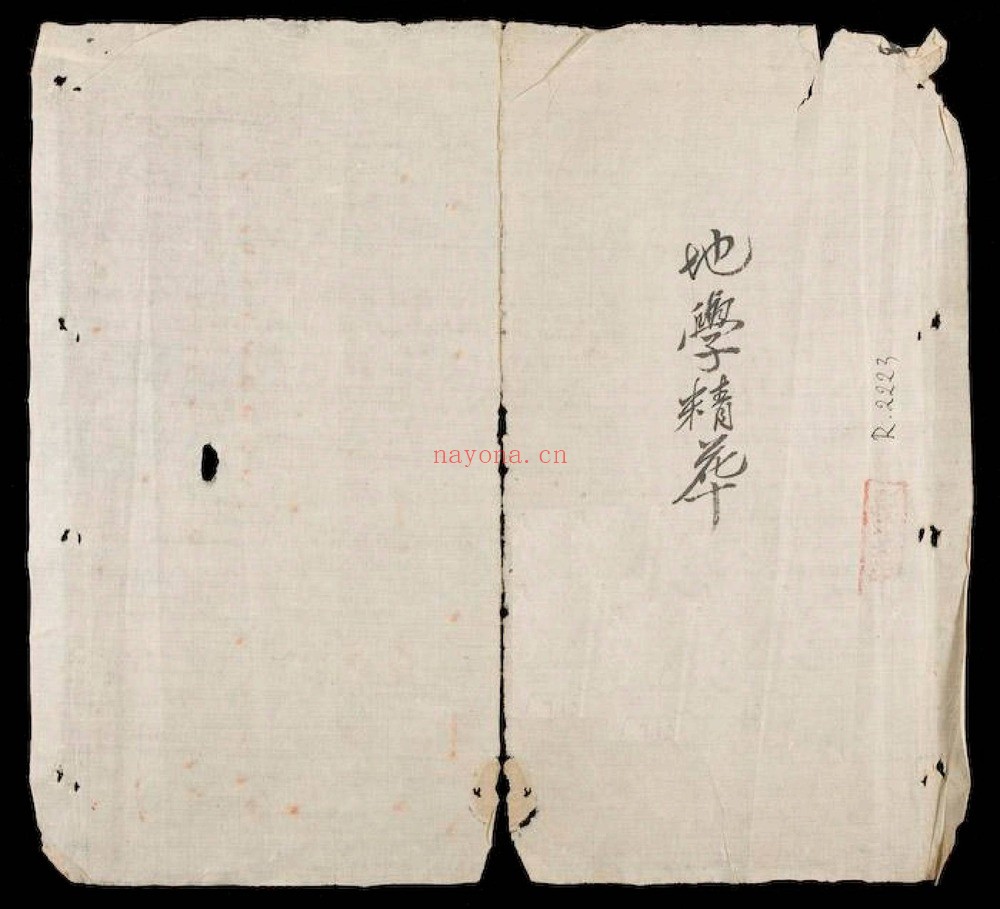 地學精華
R.2223
nayona.cn